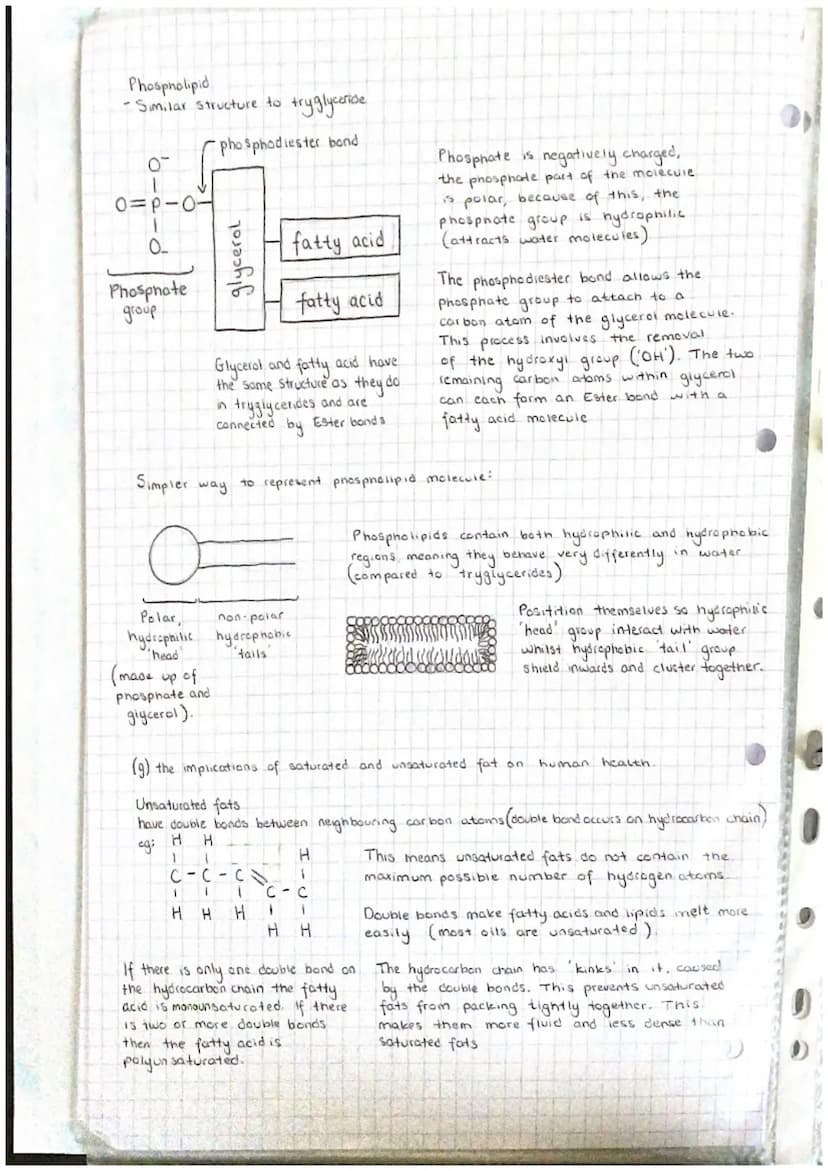 Phospholipid
- Similar structure to tryglyceride
phosphodiester bond
O-
O=P-O-
O-
Phosphate
group
glycerol
fatty acid
fatty acid
Glycerol and fatty acid have
the same structure as they do
in tryglycerides and are
connected by Ester bonds
Phosphate is negatively charged,
the phosphate part of the molecule
is polar, because of this, the
phosphate group is hydrophilic
(attracts water molecules)
The phosphodiester bond allows the
phosphate group to attach to a
carbon atom of the glycerol molecule.
This process involves the removal
of the hydroxyl group ('OH'). The two
remaining carbon atoms within glycerol
can each form an Ester bond with a
fatty acid molecule
Simpler way to represent phospholipid molecule:
Polar,
hydrophilic
'head'
(made up of
phosphate and
glycerol).
non-polar
hydrophobic
'tails'
Phospholipids contain both hydrophilic and hydrophobic
regions, meaning they behave very differently in water
(compared to tryglycerides)
Positition themselves so hydrophilic
'head' group interact with water
whilst hydrophobic 'tail' group
shield inwards and cluster together.
(g) the implications of saturated and unsaturated fat on human health.
Unsaturated fats
have double bonds between neighbouring carbon atoms (double bond occurs on hydrocarbon chain)
eg: H H
H
C - C - C
C - C
H H H
H H
This means unsaturated fats do not contain the
maximum possible number of hydrogen atoms.
Double bonds make fatty acids and lipids melt more
easily (most oils are unsaturated).
If there is only one double bond on
the hydrocarbon chain the fatty
acid is monounsaturated. If there
is two or more double bonds
then the fatty acid is
polyunsaturated.
The hydrocarbon chain has 'kinks' in it, caused
by the double bonds. This prevents unsaturated
fats from packing tightly together. This
makes them more fluid and less dense than
saturated fats